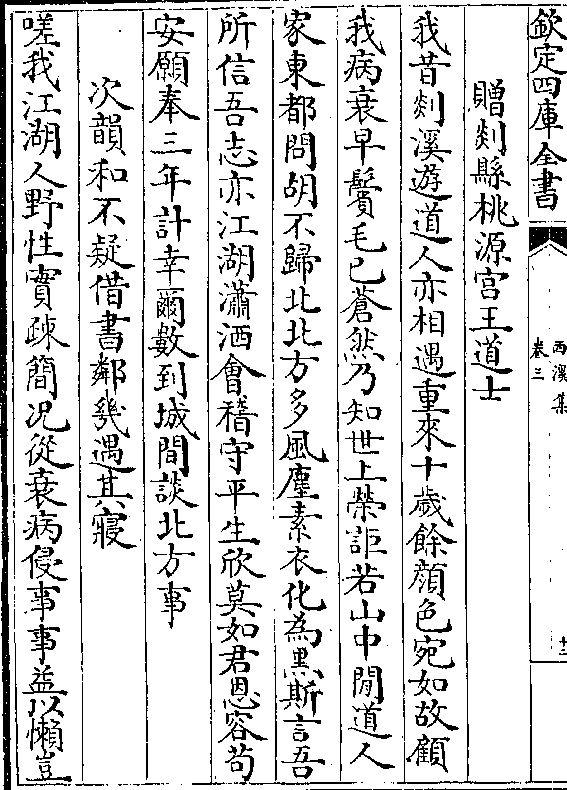 欽定四庫全書
西溪集
卷三
十三
贈剡縣桃源宮王道士
我昔剡溪遊道人亦相遇重來十歲餘顏色宛如故顧
我病衰早鬢毛已蒼然乃知世上榮詎若山中閒道人
家東都問胡不歸北北方多風塵素衣化為黒斯言吾
所信吾志亦江湖瀟洒會稽守平生欣莫如君恩容茍
安願奉三年計幸爾數到城間談北方事
次韻和不疑借書鄰幾遇其寢
嗟我江湖人野性實疎簡况從衰病侵事事益以懶豈